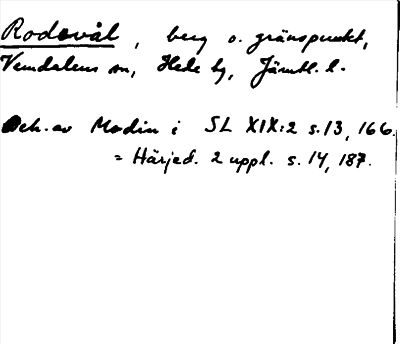 Rodovål, berg o. gränspunkt,
Vemdalens sn, Hede tg, Jämtl. l.
Beh. av Modin i SL XIX:2 s. 13, 166.
= Härjed. 2 uppl. s. 14, 187.